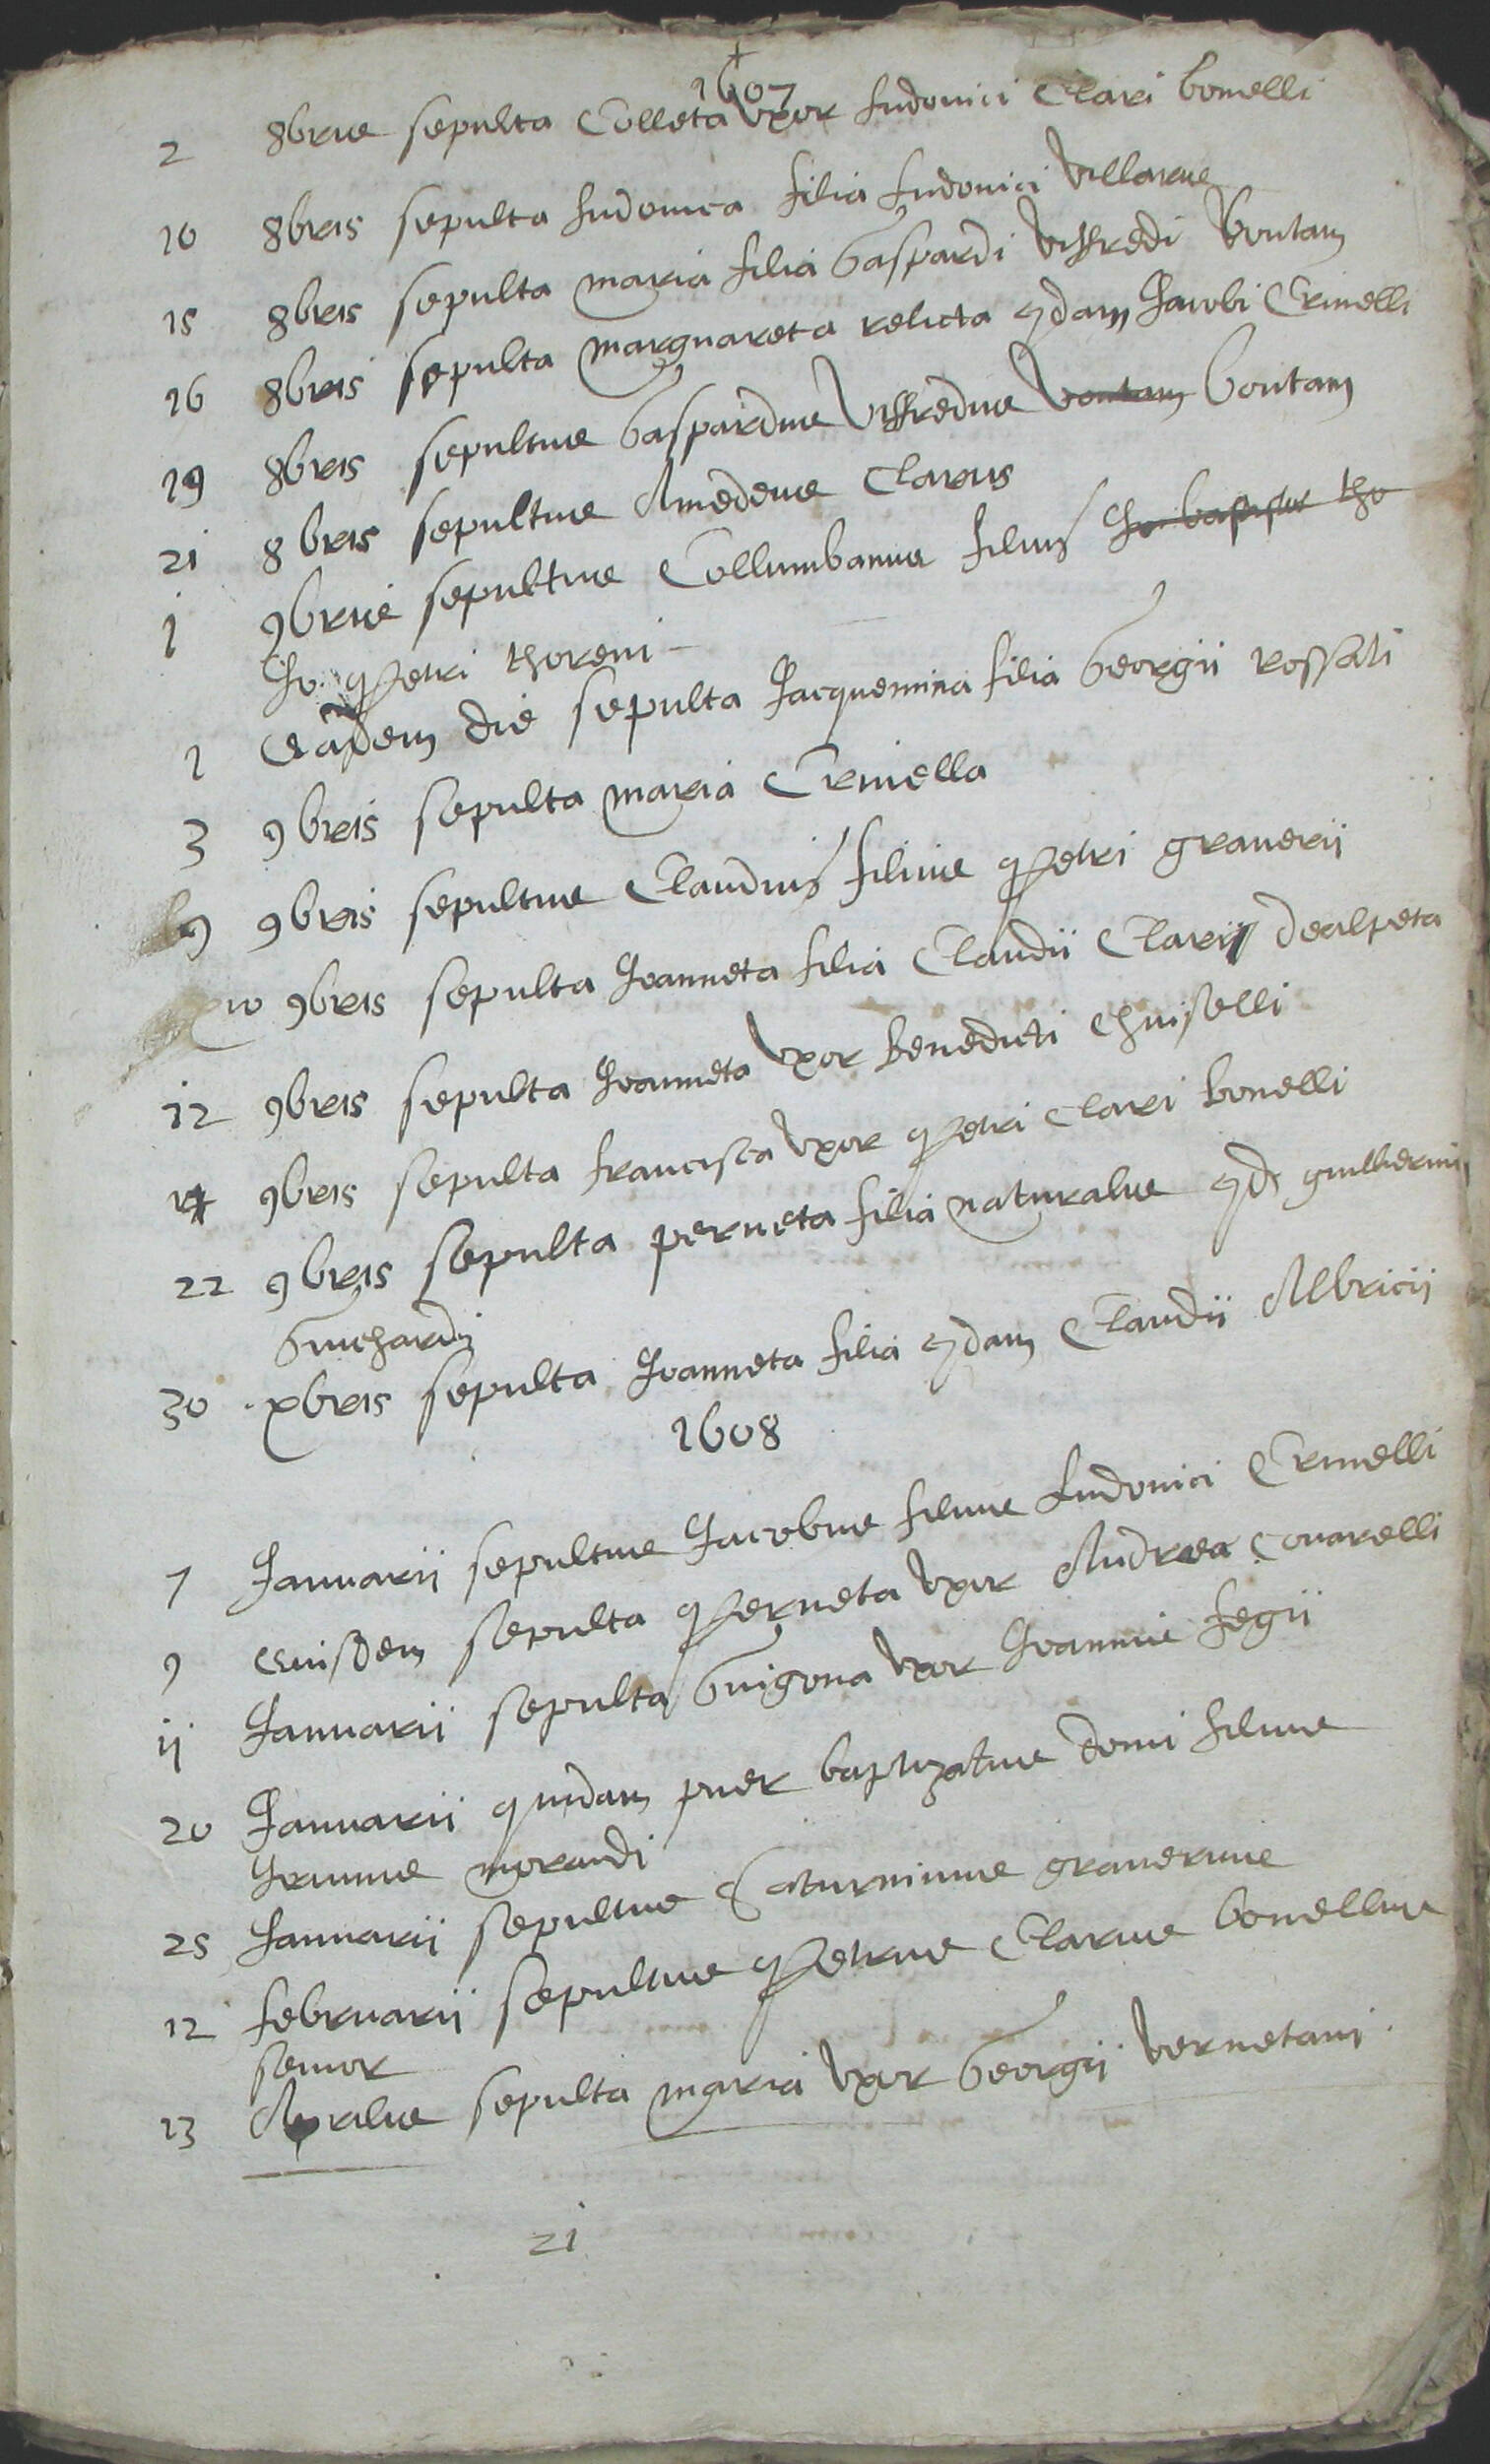 1607
2 8bris sepulta Colleta uxor Ludovici Clari bonelli
10 8bris sepulta Ludovica filia Ludovici Villarue
15 8bris sepulta maria filia Gaspardi Viffredi Boutam
16 8bris sepulta marguareta relicta qdam Jacobi Crinelli
19 8bris sepultus Gaspardus Viffredus Voutam boutam
21 8bris sepultus Amedeus Clarus
1 9bris sepultus Collumbanus filius Jo baptiste tho
Jo. Petri thoreni
1 Eadem die sepulta Jacquemina filia Georgii rossati
3 9bris sepulta maria Crinella
9 9bris sepultus Claudius filius Petri graverii
10 9bris sepulta Joanneta filia Claudii Clarii dealpeta
12 9bris sepulta Joanneta uxor benedicti Chuiselli
14 9bris sepulta francisca uxor Petri Clari bonelli
22 9bris sepulta perneta filia naturalis qd guilliermi
Guichardi
30 xbris sepulta Joanneta filia qdam Claudii Albricii
1608
7 Januarii sepultus Jacobus filius Ludovici Crinelli
9 Eiusdem sepulta Perneta uxor Andrea Covarelli
ij Januarii sepulta Guigona uxor Joannis Legii
20 Januarii quidam puer baptizatus domi filius
Joannis morandi
25 Januarii sepultus Saturninus graverius
12 februarii sepultus Petrus Clarus bonellus
senior
13 Aprilis sepulta maria uxor Georgii Vernetani
21